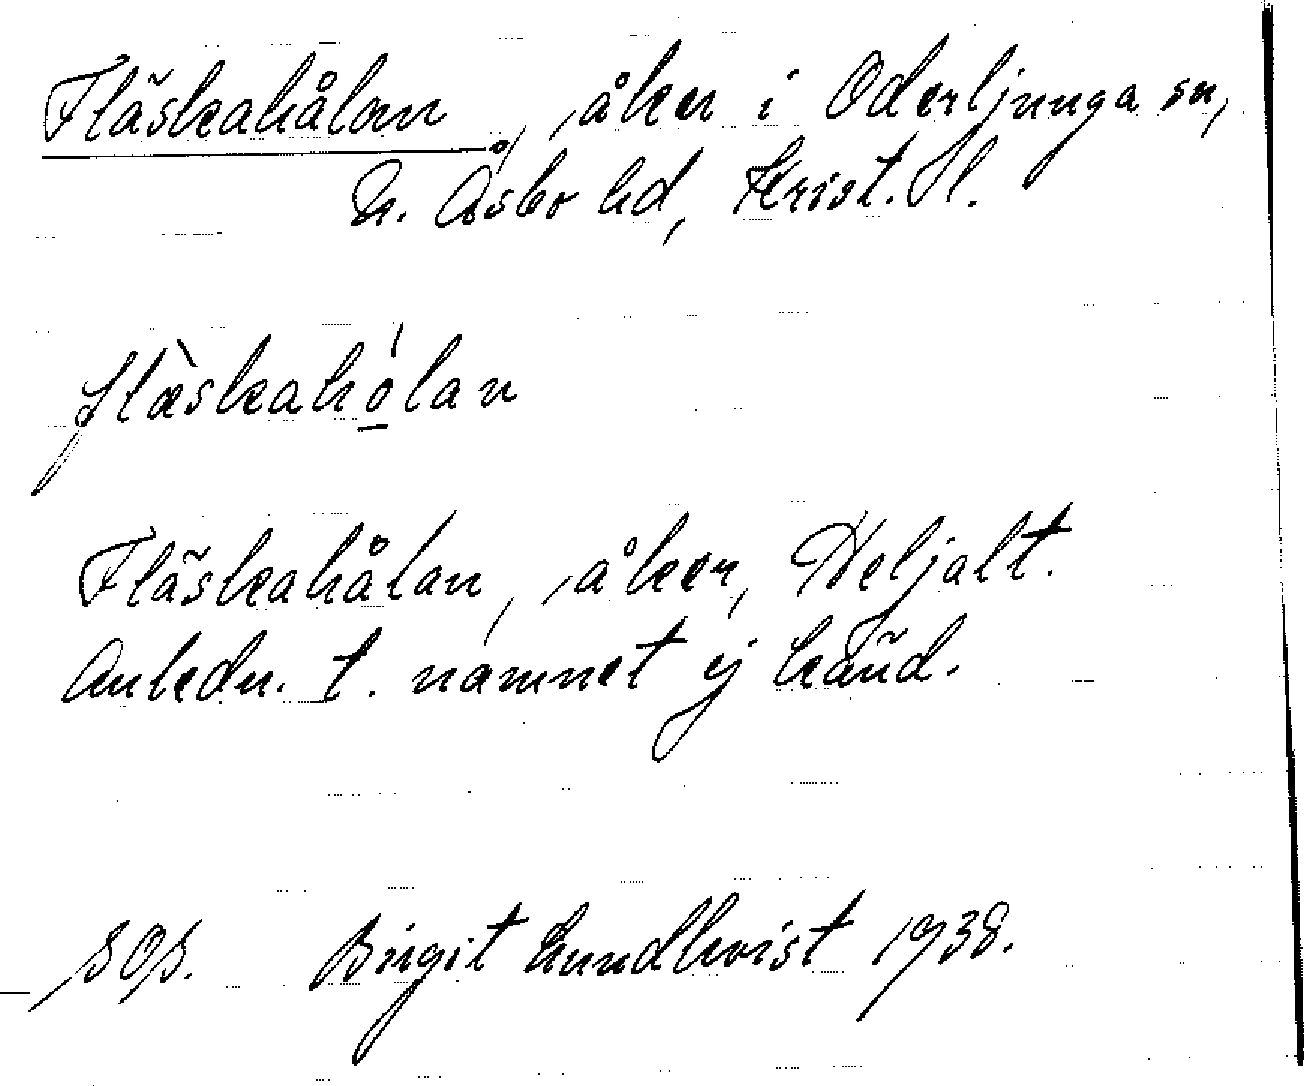 Fläskahålan, åker i Oderljunga sn,
N. Åsbo hd, Krist. l.
flæ̀skahó̠lan
Fläskahålan, åker, Heljalt.
Anledn. t. namnet ej känd.
SOS. Birgit Lundkvist 1938.